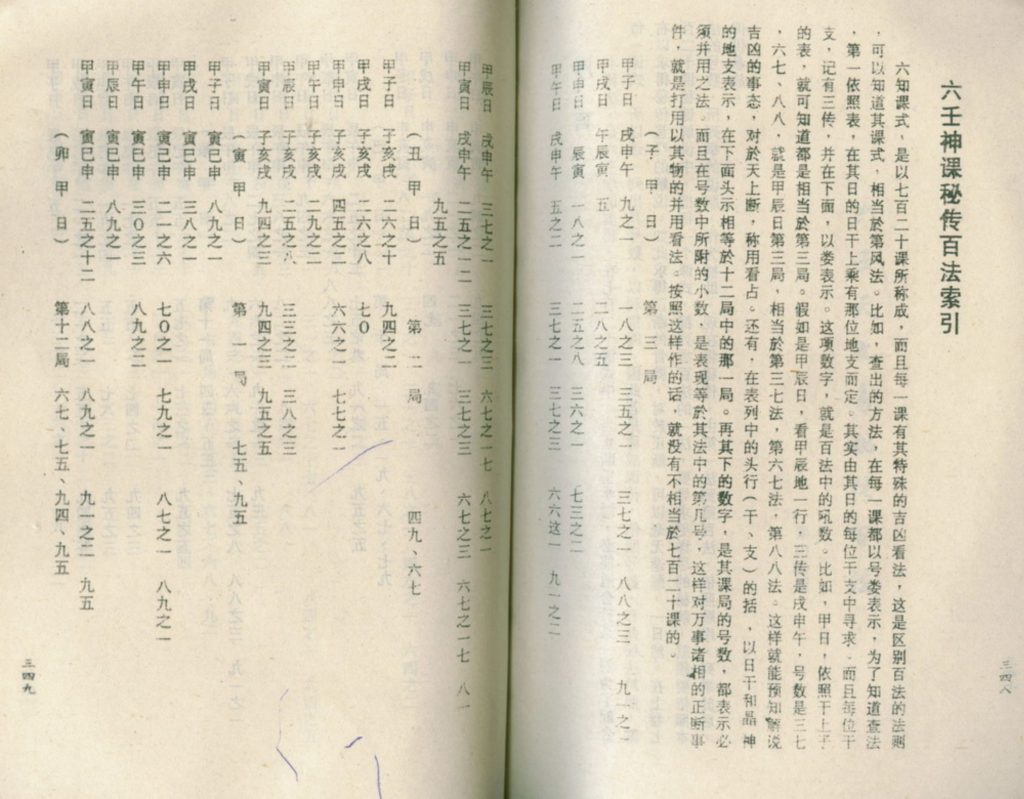 六壬神课秘传百法索引
六知课式，是以七百二十课所称成，而且每一课有其特殊的吉凶看法，这是区别百法的法则
，可以知道其课式，相当於第风法。比如，查出的方法，在每一课都以号娄表示，为了知道查法
，第一依照表，在其日的日干上乘有那位地支而定。其实由其日的每位干支中寻求。而且每位干
支，记有三传，并在下面，以娄表示。这项数字，就是百法中的吼数。比如，甲日，依照干上子
的表，就可知道都是相当於第三局。假如是甲辰日，看甲辰地一行，三传是戌申午，号数是三七
，六七、八八，就是甲辰日第三局，相当於第三七法，第六七法，第八八法。这样就能预知解说
吉凶的事态，对於天上断，称用看占。还有，在表列中的头行（干、支）的括，以日干和晶神
的地支表示，在下面头示相等於十二局中的那一局。再其下的数字，是其课局的号数，都表示必
须并用之法。而且在号数中所附的小数，是表现等於其法中的第几号，这样对万事诸相的正断事
件，就是打用以其物的并用看法。按照这样作的话，就没有不相当於七百二十课的。
（子 甲 日） 第 三 局
甲子日 戌申午 九之一 一八之三 三五之一 三七之一 八八之三 九一之一
甲戌日 午辰寅 五 二八之五
甲申日 辰寅 一八之一 二五之八 三六之一 七三之二
甲午日 戌申午 五之二 三七之一 三七之三 六六这一 九一之二
三四八
甲辰日 戌申午 三七之一 三七之三 六七之一七 八七之一
甲寅日 戌申午 二五之一二 三七之一 三七之三 六七之三 六七之一七 八一
九五之五
（丑 甲 日） 第 二 局 四九、六七
甲子日 子亥戌 二六之十 九四之二
甲戌日 子亥戌 二六之八 七〇
甲申日 子亥戌 四五之二 六六之一 七七之一
甲午日 子亥戌 九九之二
甲辰日 子亥戌 二五之八 三三之二 三八之三
甲寅日 子亥戌 九四之三 九四之三 九五之五
（寅 甲 日） 第 一 局 七五、九五
甲子日 寅巳申 八九之一
甲戌日 寅巳申 三八之一
甲申日 寅巳申 二一之六 七〇之一 七九之一 八七之一 八九之一
甲午日 寅巳申 三〇之三 八九之二
甲辰日 寅巳申 八九之一
甲寅日 寅巳申 二五之十二 八八之一 八九之一 九一之二 九五
（卯 甲 日） 第十二局 六七、七五、九四、九五
三四九